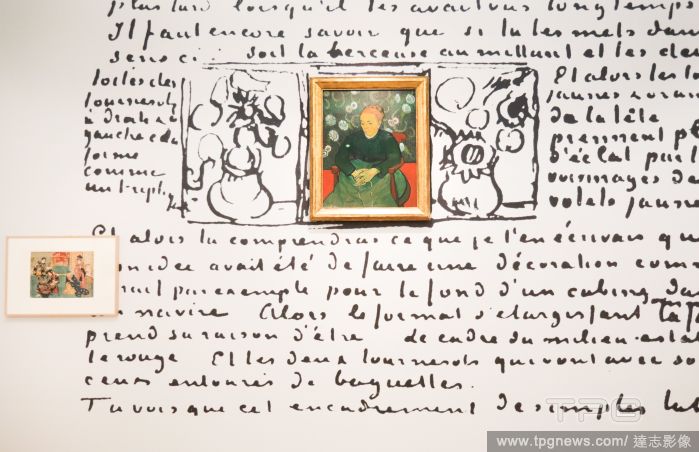 plus tard lorsqu'il les avait vus longtemps
Il faut encore savoir que si tu les mets dans
sens ci: soit la berceuse au milieu et les
toiles des
tournesols
à droite &
gauche cela
forme
comme
un triptyque
Et alors les
jaunes
de la tête
prennent
d'éclat par
voisinages de
volets jaunes
Et alors tu comprendras ce que je t'en écrivais que
idée avait été de faire une décoration comme
serait par exemple pour le fond d'un cabine dans
un navire Alors le format s'élargissant
prend sa raison d'être de cadre du milieu est al
le rouge Et les deux tournesols qui vont avec so
ceux entourés de baguettes.
Tu vois que cet encadrement de simples lat
TPG
www.tpgnews.com/ 達志影像